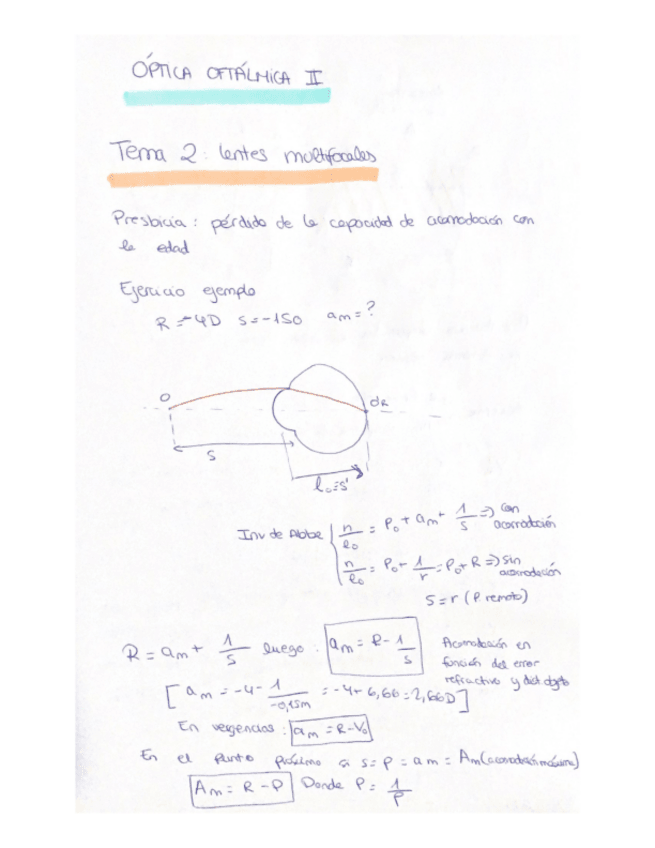 ÓPTICA OFTÁLMICA II
Tema 2: lentes multifocales
Presbicia: pérdida de la capacidad de acomodación con
la edad
Ejercicio ejemplo
R = -4D   s = -150   am = ?
O
dR
s
l₀ = s'
Inv de Abbe { n/l₀ = P₀ + am + 1/s ⇒ con acomodación
n/l₀ = P₀ + 1/r = P₀ + R ⇒ sin acomodación
s = r (P remoto)
R = am + 1/s luego: am = R - 1/s
Acomodación en
función del error
refractivo y dist objeto
[ am = -4 - 1/-0,15m = -4 + 6,66 = 2,66D ]
En vergencias: am = R - V₀
En el punto próximo si s = p = am = Am (acomodación máxima)
Am = R - P   Donde P = 1/p